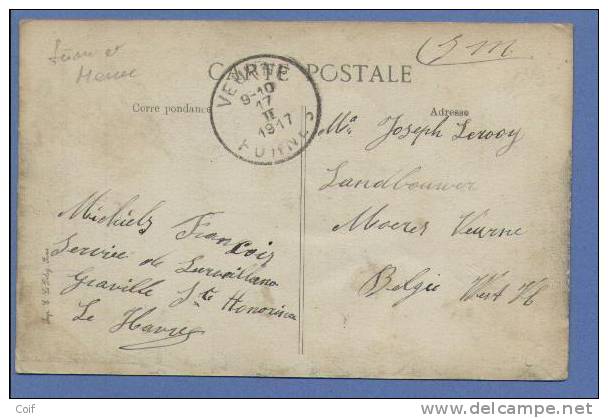 S.M.
CARTE POSTALE
VEURNE
9-10
17
II
1917
FURNES
Correspondance
Adresse
Mr Joseph Lerooy
Landbouwer
Moeres Veurne
Belgie West Vl
Michiels François
Service de Surveillance
Graville Ste Honorine
Le Havre
Coif
delcampe.net